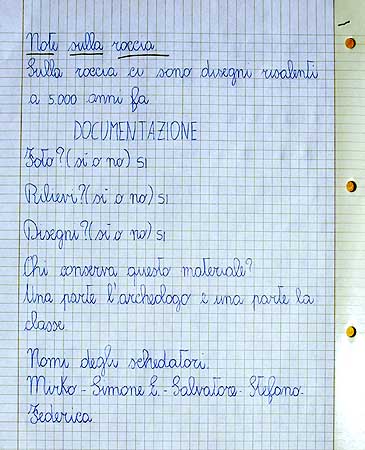 Note sulla roccia
Sulla roccia ci sono disegni risalenti
a 5.000 anni fa
DOCUMENTAZIONE
Foto? (si o no) SI
Rilievi? (si o no) SI
Disegni? (si o no) SI
Chi conserva questo materiale?
Una parte l'archeologo e una parte la
classe
Nomi degli schedatori.
Mirko - Simone E. - Salvatore - Stefano -
Federica